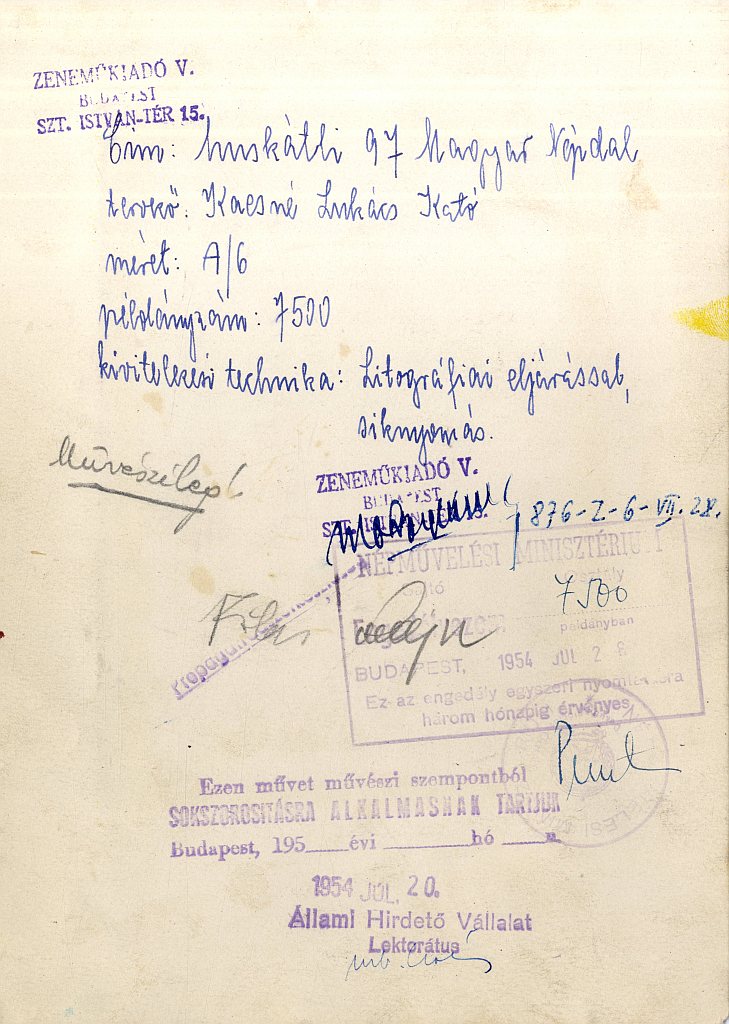 ZENEMŰKIADÓ V.
BUDAPEST
SZT. ISTVÁN-TÉR 15.
Cím: Muskátli 97 Magyar Népdal
tervező: Kacsné Lukács Kató
méret: A/6
példányszám: 7500
kivitelezési technika: Litográfiai eljárással,
siknyomás.
ZENEMŰKIADÓ V.
BUDAPEST
SZT. ISTVÁN
876-I-6-VII. 28.
NÉPMŰVELÉSI MINISZTÉRIUM
7500
példányban
BUDAPEST, 1954 JUL 2
Ez az engedély egyszeri nyomtatásra
három hónapig érvényes
Ezen művet művészi szempontból
SOKSZOROSITÁSRA ALKALMASNAK TARTJUK
Budapest, 195 évi hó n
1954 JUL. 20.
Állami Hirdető Vállalat
Lektorátus